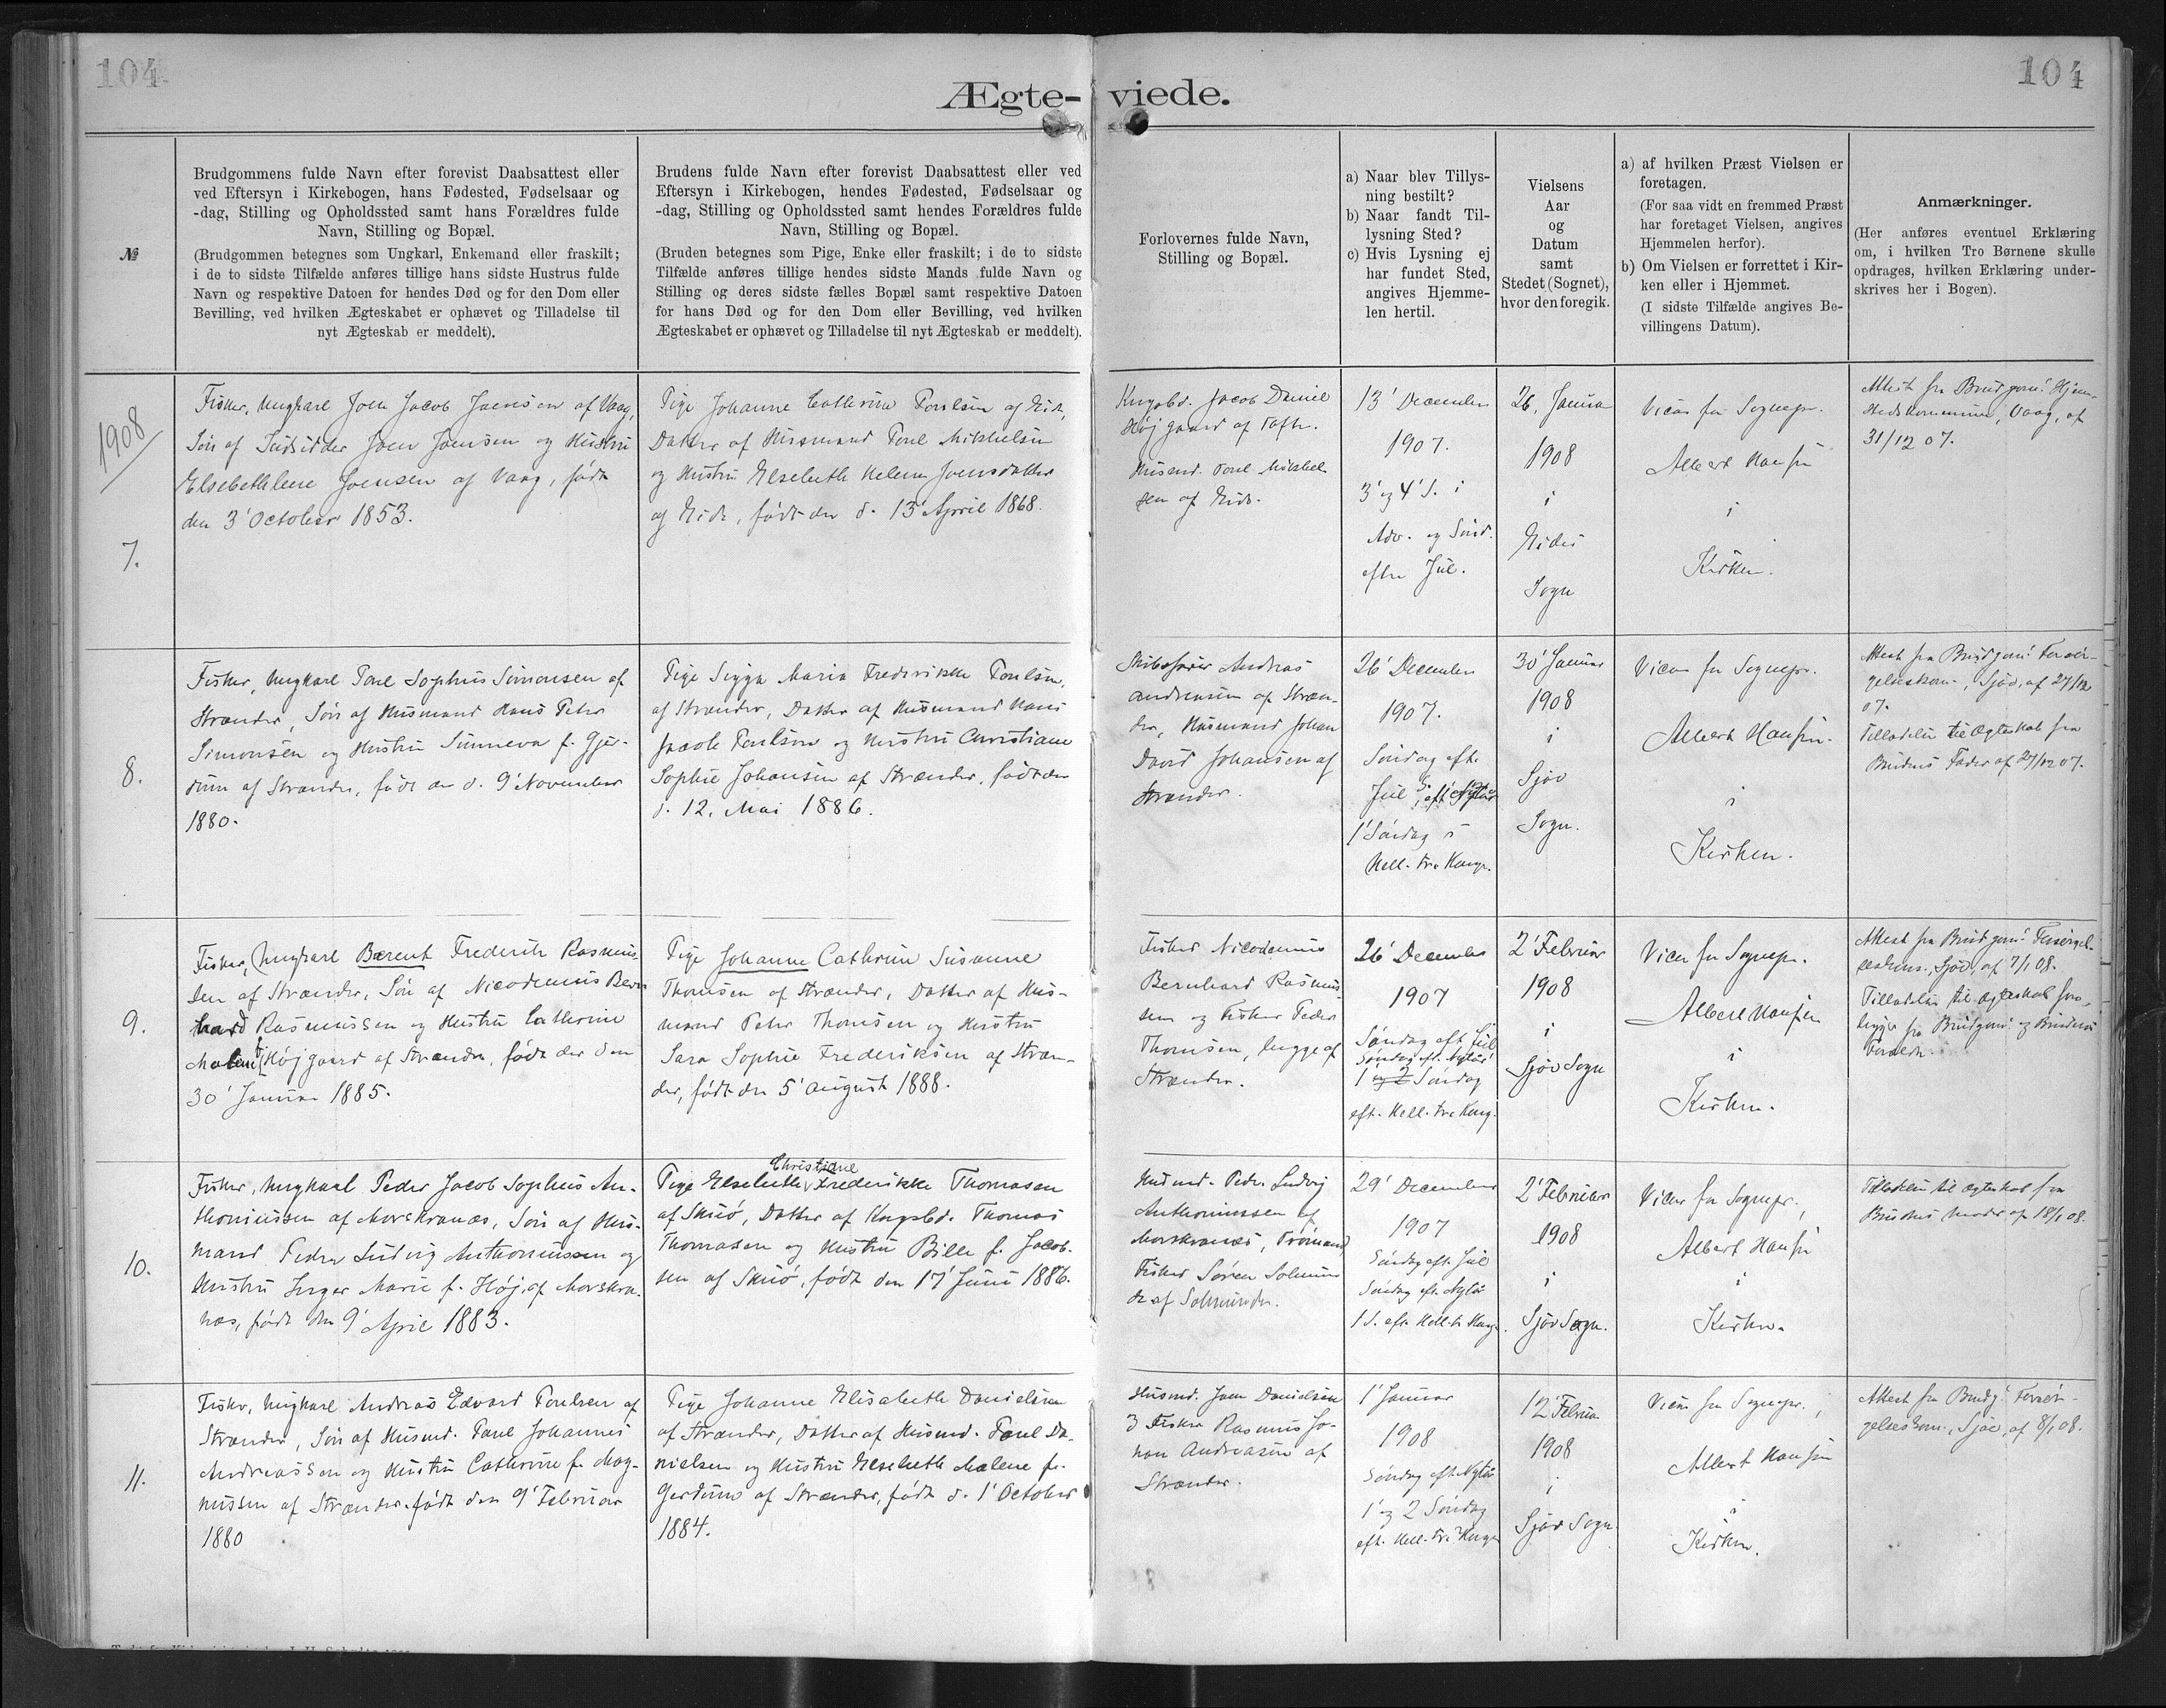 104
104
Ægte-viede.
№
Brudgommens fulde Navn efter forevist Daabsattest eller
ved Eftersyn i Kirkebogen, hans Fødested, Fødselsaar og
-dag, Stilling og Opholdssted samt hans Forældres fulde
Navn, Stilling og Bopæl.
(Brudgommen betegnes som Ungkarl, Enkemand eller fraskilt;
i de to sidste Tilfælde anføres tillige hans sidste Hustrus fulde
Navn og respektive Datoen for hendes Død og for den Dom eller
Bevilling, ved hvilken Ægteskabet er ophævet og Tilladelse til
nyt Ægteskab er meddelt).
Brudens fulde Navn efter forevist Daabsattest eller ved
Eftersyn i Kirkebogen, hendes Fødested, Fødselsaar og
-dag, Stilling og Opholdssted samt hendes Forældres fulde
Navn, Stilling og Bopæl.
(Bruden betegnes som Pige, Enke eller fraskilt; i de to sidste
Tilfælde anføres tillige hendes sidste Mands fulde Navn og
Stilling og deres sidste fælles Bopæl samt respektive Datoen
for hans Død og for den Dom eller Bevilling, ved hvilken
Ægteskabet er ophævet og Tilladelse til nyt Ægteskab er meddelt).
Forlovernes fulde Navn,
Stilling og Bopæl.
a) Naar blev Tillys-
ning bestilt?
b) Naar fandt Til-
lysning Sted?
c) Hvis Lysning ej
har fundet Sted,
angives Hjemme-
len hertil.
Vielsens
Aar
og
Datum
samt
Stedet (Sognet),
hvor den foregik.
a) af hvilken Præst Vielsen er
foretagen.
(For saa vidt en fremmed Præst
har foretaget Vielsen, angives
Hjemmelen herfor).
b) Om Vielsen er forrettet i Kir-
ken eller i Hjemmet.
(I sidste Tilfælde angives Be-
villingens Datum).
Anmærkninger.
(Her anføres eventuel Erklæring
om, i hvilken Tro Børnene skulle
opdrages, hvilken Erklæring under-
skrives her i Bogen).
1908
7.
Fisker, Ungkarl Joen Jacob Joensen af Vaag,
Søn af Indsidder Joen Joensen og Hustru
Elsebethlene Joensen af Vaag, født
den 3' October 1853.
Pige Johanne Cathrine Poulsen af Eide,
Datter af Husmand Poul Mikkelsen
og Hustru Elsebeth Helene Joensdatter
af Eide, født der d. 13 April 1868.
Kngsbd. Jacob Daniel
Højgaard af Tofte.
Husmd. Poul Mikkel-
sen af Eide.
13' December
1907.
3' og 4' S. i
Adv. og Sønd.
efter Jul.
26, Januar
1908
i
Eides
Sogn
Vicar for Sognepr.
Albert Hansen
i
Kirken.
Attest fra Brudgom: Hjem-
stedskommune, Vaag, af
31/12 07.
8.
Fisker, Ungkarl Poul Sophus Simonsen af
Strænder, Søn af Husmand Hans Peter
Simonsen og Hustru Sunneva f. Gjer-
dum af Strænder, født der d. 9' November
1880.
Pige Sigga Maria Frederikke Poulsen,
af Strænder, Datter af Husmand Hans
Jacob Poulsen og Hustru Christiane
Sophie Johansen af Strænder, født der
d. 12. Mai 1886.
Skibsfører Andreas
Andreasen af Stræn-
der, Husmand Johan
David Johansen af
Strænder.
26' December
1907.
Søndag eft.
Jul, S. eft. Nytår
1' Søndag e
Hell. tre Konger.
30' Januar
1908
i
Sjøv
Sogn.
Vicar for Sognepr.
Albert Hansen.
i
Kirken.
Attest fra Brudgom: Forsør-
gelseskom., Sjøv, af 27/12
07.
Tilladelse til Ægteskab fra
Brudens Fader af 27/12 07.
9.
Fisker, Ungkarl Bærent Frederik Rasmus-
sen af Strænder, Søn af Nicodemus Bern-
hard Rasmussen og Hustru Cathrine
Malene f. Højgaard af Strænder, født der den
30' Januar 1885.
Pige Johanne Cathrine Susanne
Thomsen af Strænder, Datter af Hus-
mand Peter Thomsen og Hustru
Sara Sophie Frederiksen af Stræn-
der, født der 5' August 1888.
Fisker Nicodemus
Bernhard Rasmus-
sen og Fisker Peder
Thomsen, begge af
Strænder.
26' December
1907
Søndag eft. Jul
Søndag eft. Nytår
1 og 2 Søndag
eft. Hell. tre Kong.
2' Februar
1908
i
Sjøv Sogn
Vicar for Sognepr.
Albert Hansen
i
Kirken.
Attest fra Brudgom: Forsørgel-
seskom., Sjøv, af 7/1 08.
Tilladelse til Ægteskab fore-
ligger fra Brudgoms og Brudens
Forældr.
10.
Fisker, Ungkarl Peder Jacob Sophus An-
thoniussen af Morskranæs, Søn af Hus-
mand Peder Ludvig Anthoniussen og
Hustru Inger Marie f. Høj, af Morskra-
næs, født den 9' April 1883.
Christiane
Pige Elsebeth Frederikke Thomasen
af Skuø, Datter af Kngsbd. Thomas
Thomasen og Hustru Bille f. Jacob-
sen af Skuø, født den 17' Juni 1886.
Husmd. Peder Ludvig
Anthoniussen af
Morskranæs,
Fisker Søren Solmun-
de af Solmunde.
29' December
1907
Søndag eft. Jul
Søndag eft. Nytår
1 S. eft. Hell. tr. Kong.
2' Februar
1908
i
Sjøv Sogn.
Vicar for Sognepr.,
Albert Hansen
i
Kirken.
Tilladelse til Ægteskab fra
Brudens Moder af 18/1 08.
11.
Fisker, Ungkarl Andreas Edvard Poulsen af
Strænder, Søn af Husmd. Poul Johannes
Andreassen og Hustru Cathrine f. Mag-
nussen af Strænder, født den 9' Februar
1880
Pige Johanne Elisabeth Danielsen
af Strænder, Datter af Husmd. Poul Da-
nielsen og Hustru Elsebeth Malene f.
Gerdum af Strænder, født d. 1' October
1884.
Husmd. Joen Danielsen
og Fisker Rasmus Jo-
han Andreasen af
Strænder.
1' Januar
1908
Søndag eft. Nytår
1' og 2 Søndag
eft. Hell. tre Konger
12' Februar
1908
i
Sjøv Sogn.
Vicar for Sognepr.,
Albert Hansen
i
Kirken.
Attest fra Brudg: Forsør-
gelseskom., Sjøv, af 8/1 08.